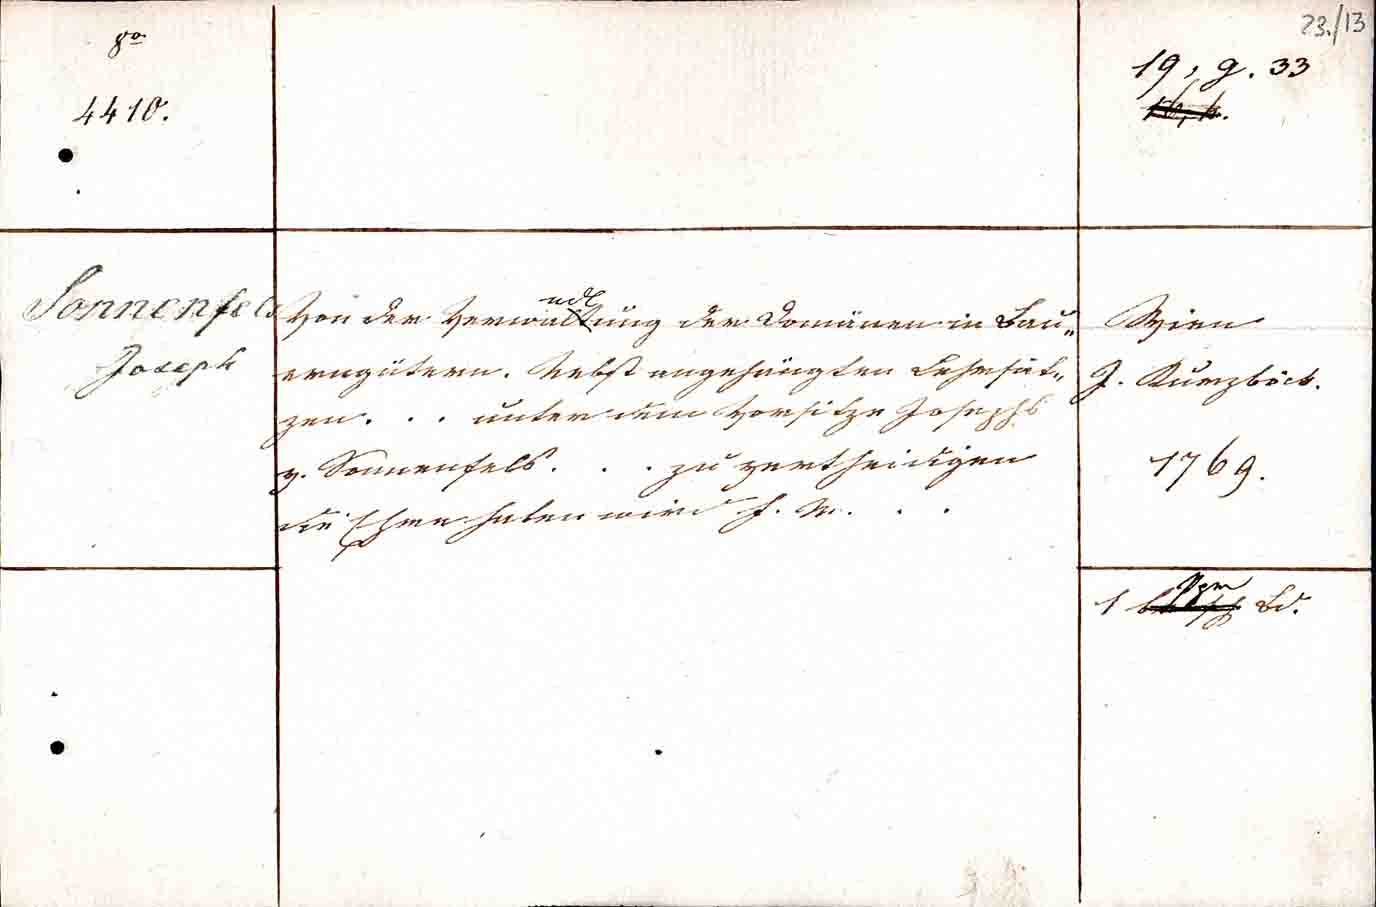 23./13
8o
4410.
19, g. 33
Sonnenfels
Joseph
Von der Verwandlung der Domänen in Bau„
erngütern. Nebst angehängten Lehrsät„
zen. . . unter dem Vorsitze Josephs
v. Sonnenfels. . . zu vertheidigen
die Ehre haben wird J. M. . .
Wien
J. Kurzböck.
1769.
1 Bd.